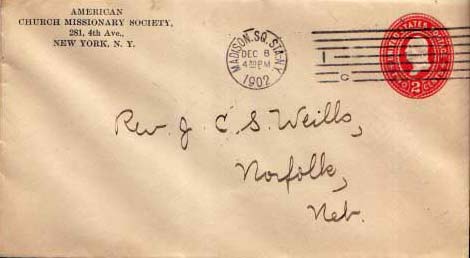 AMERICAN
CHURCH MISSIONARY SOCIETY,
281, 4th Ave.,
NEW YORK, N. Y.
MADISON. SQ. STA. N.Y.
DEC 8
PM
1902
1
C
UNITED STATES POSTAGE
2
Rev. J C. S. Weills,
Norfolk,
Neb.